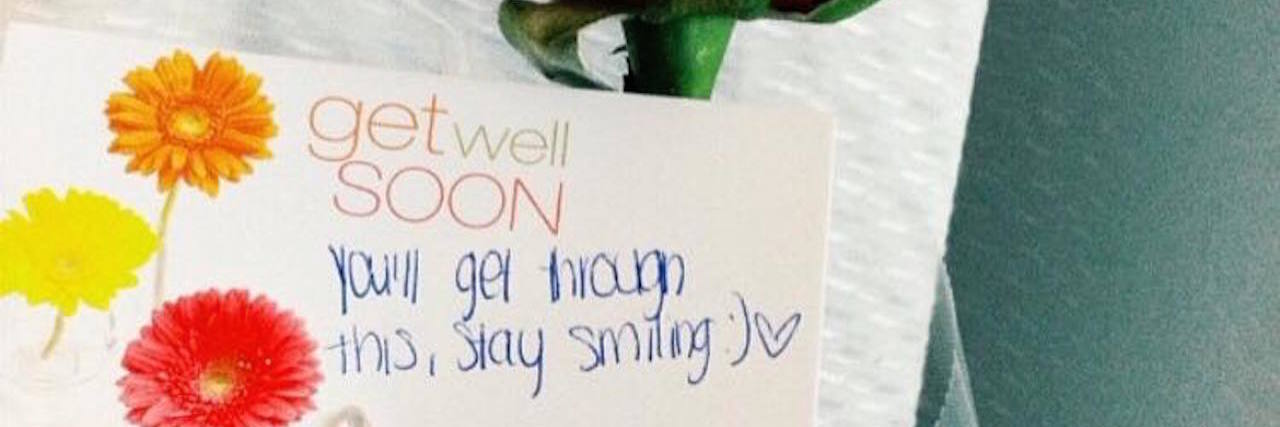 get well
SOON
You'll get through
this, stay smiling :)♡